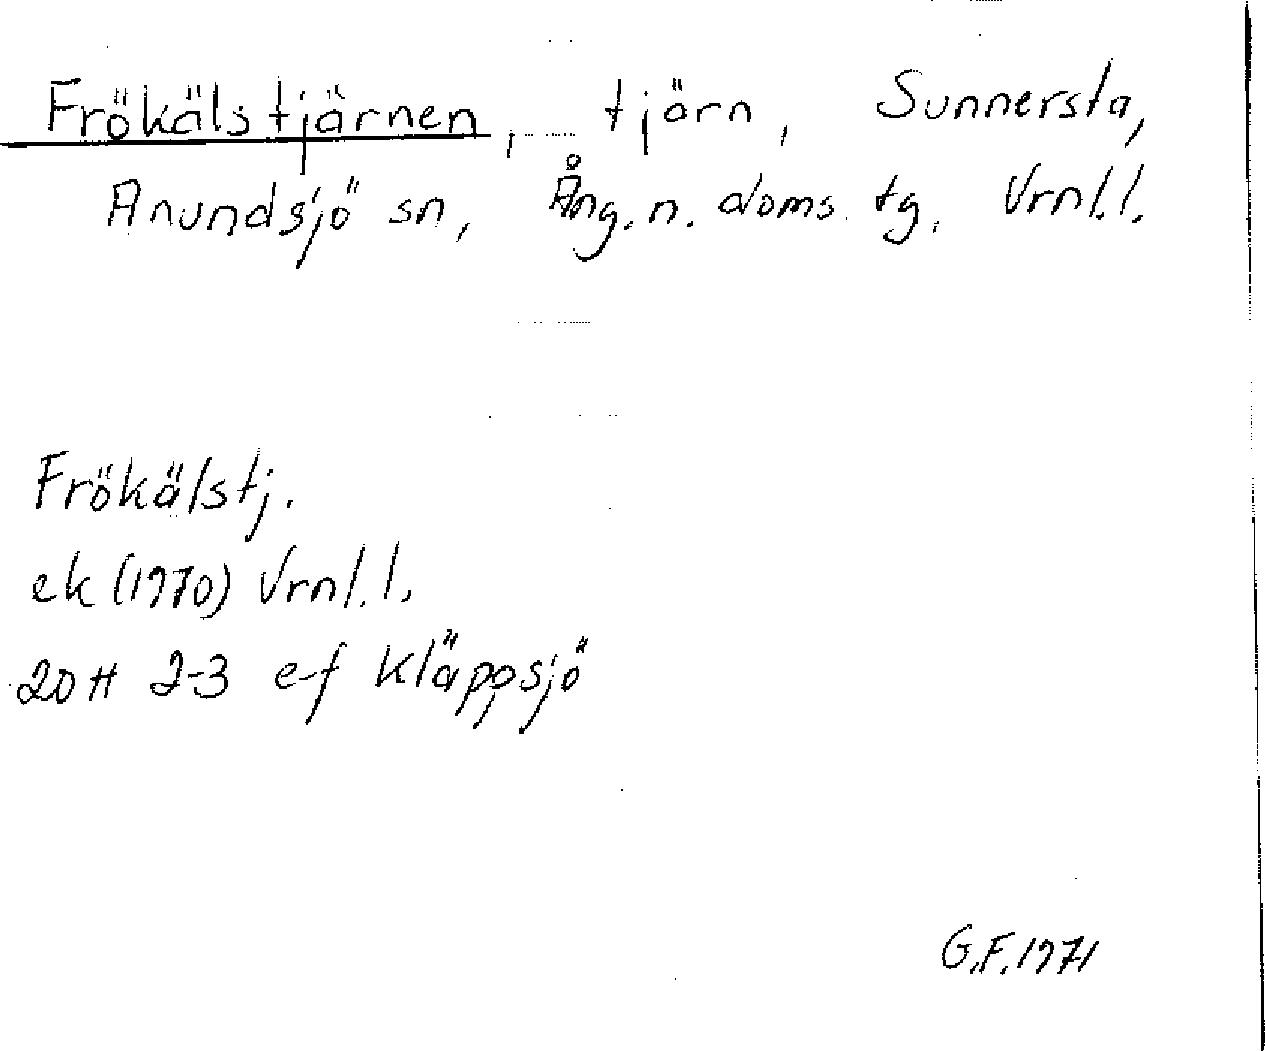 Frökälstjärnen, tjärn, Sunnersta,
Anundsjö sn, Ång. n. doms. tg. Vrnl. l.
Frökälstj.
ek (1970) Vrnl. l.
20H 2-3 e-f Kläppsjö
G.F. 1971